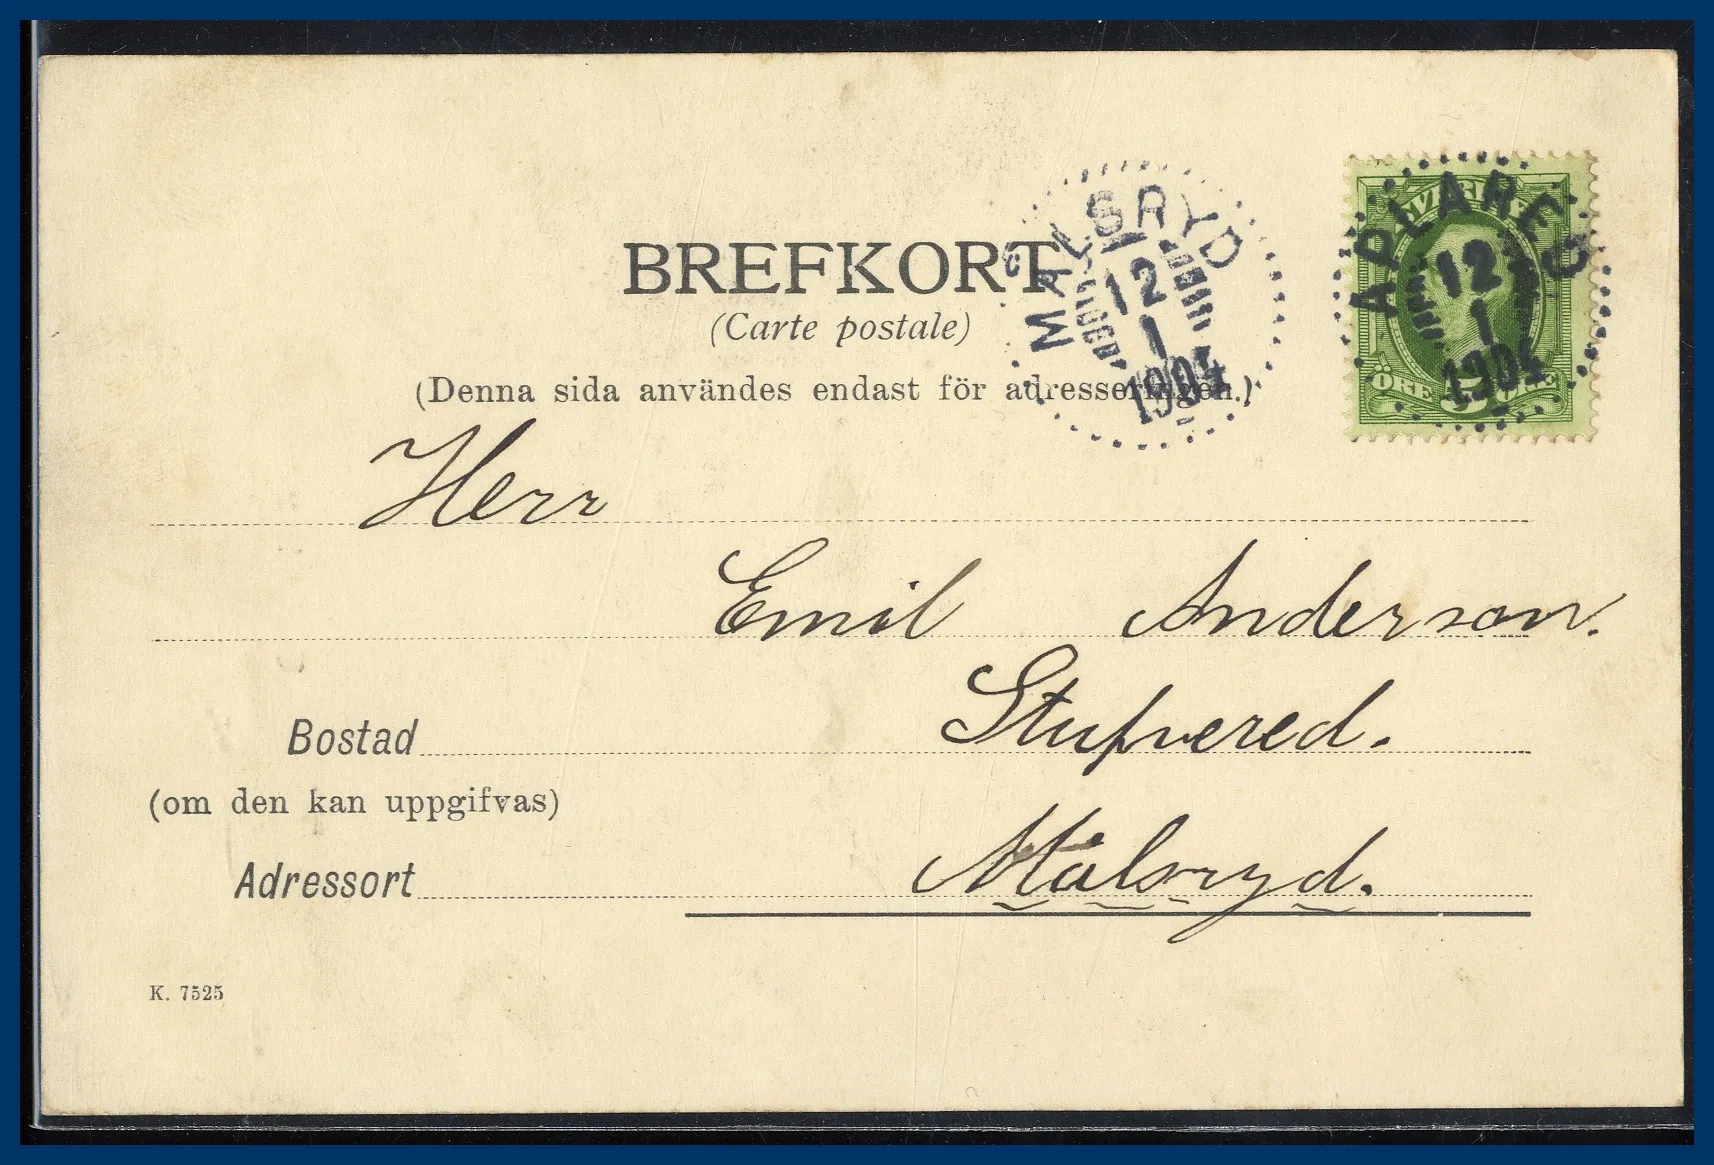 BREFKORT
(Carte postale)
(Denna sida användes endast för adresseringen.)
MALSRYD
12
1
1904
APLARED
12
1
1904
SVERIGE
ÖRE 5 ÖRE
Herr
Emil Anderson.
Stufvered.
Bostad
(om den kan uppgifvas)
Målsryd.
Adressort
K. 7525